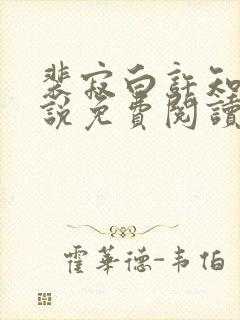 裴寂白許知
說免費閱讀
霍華德-韦伯